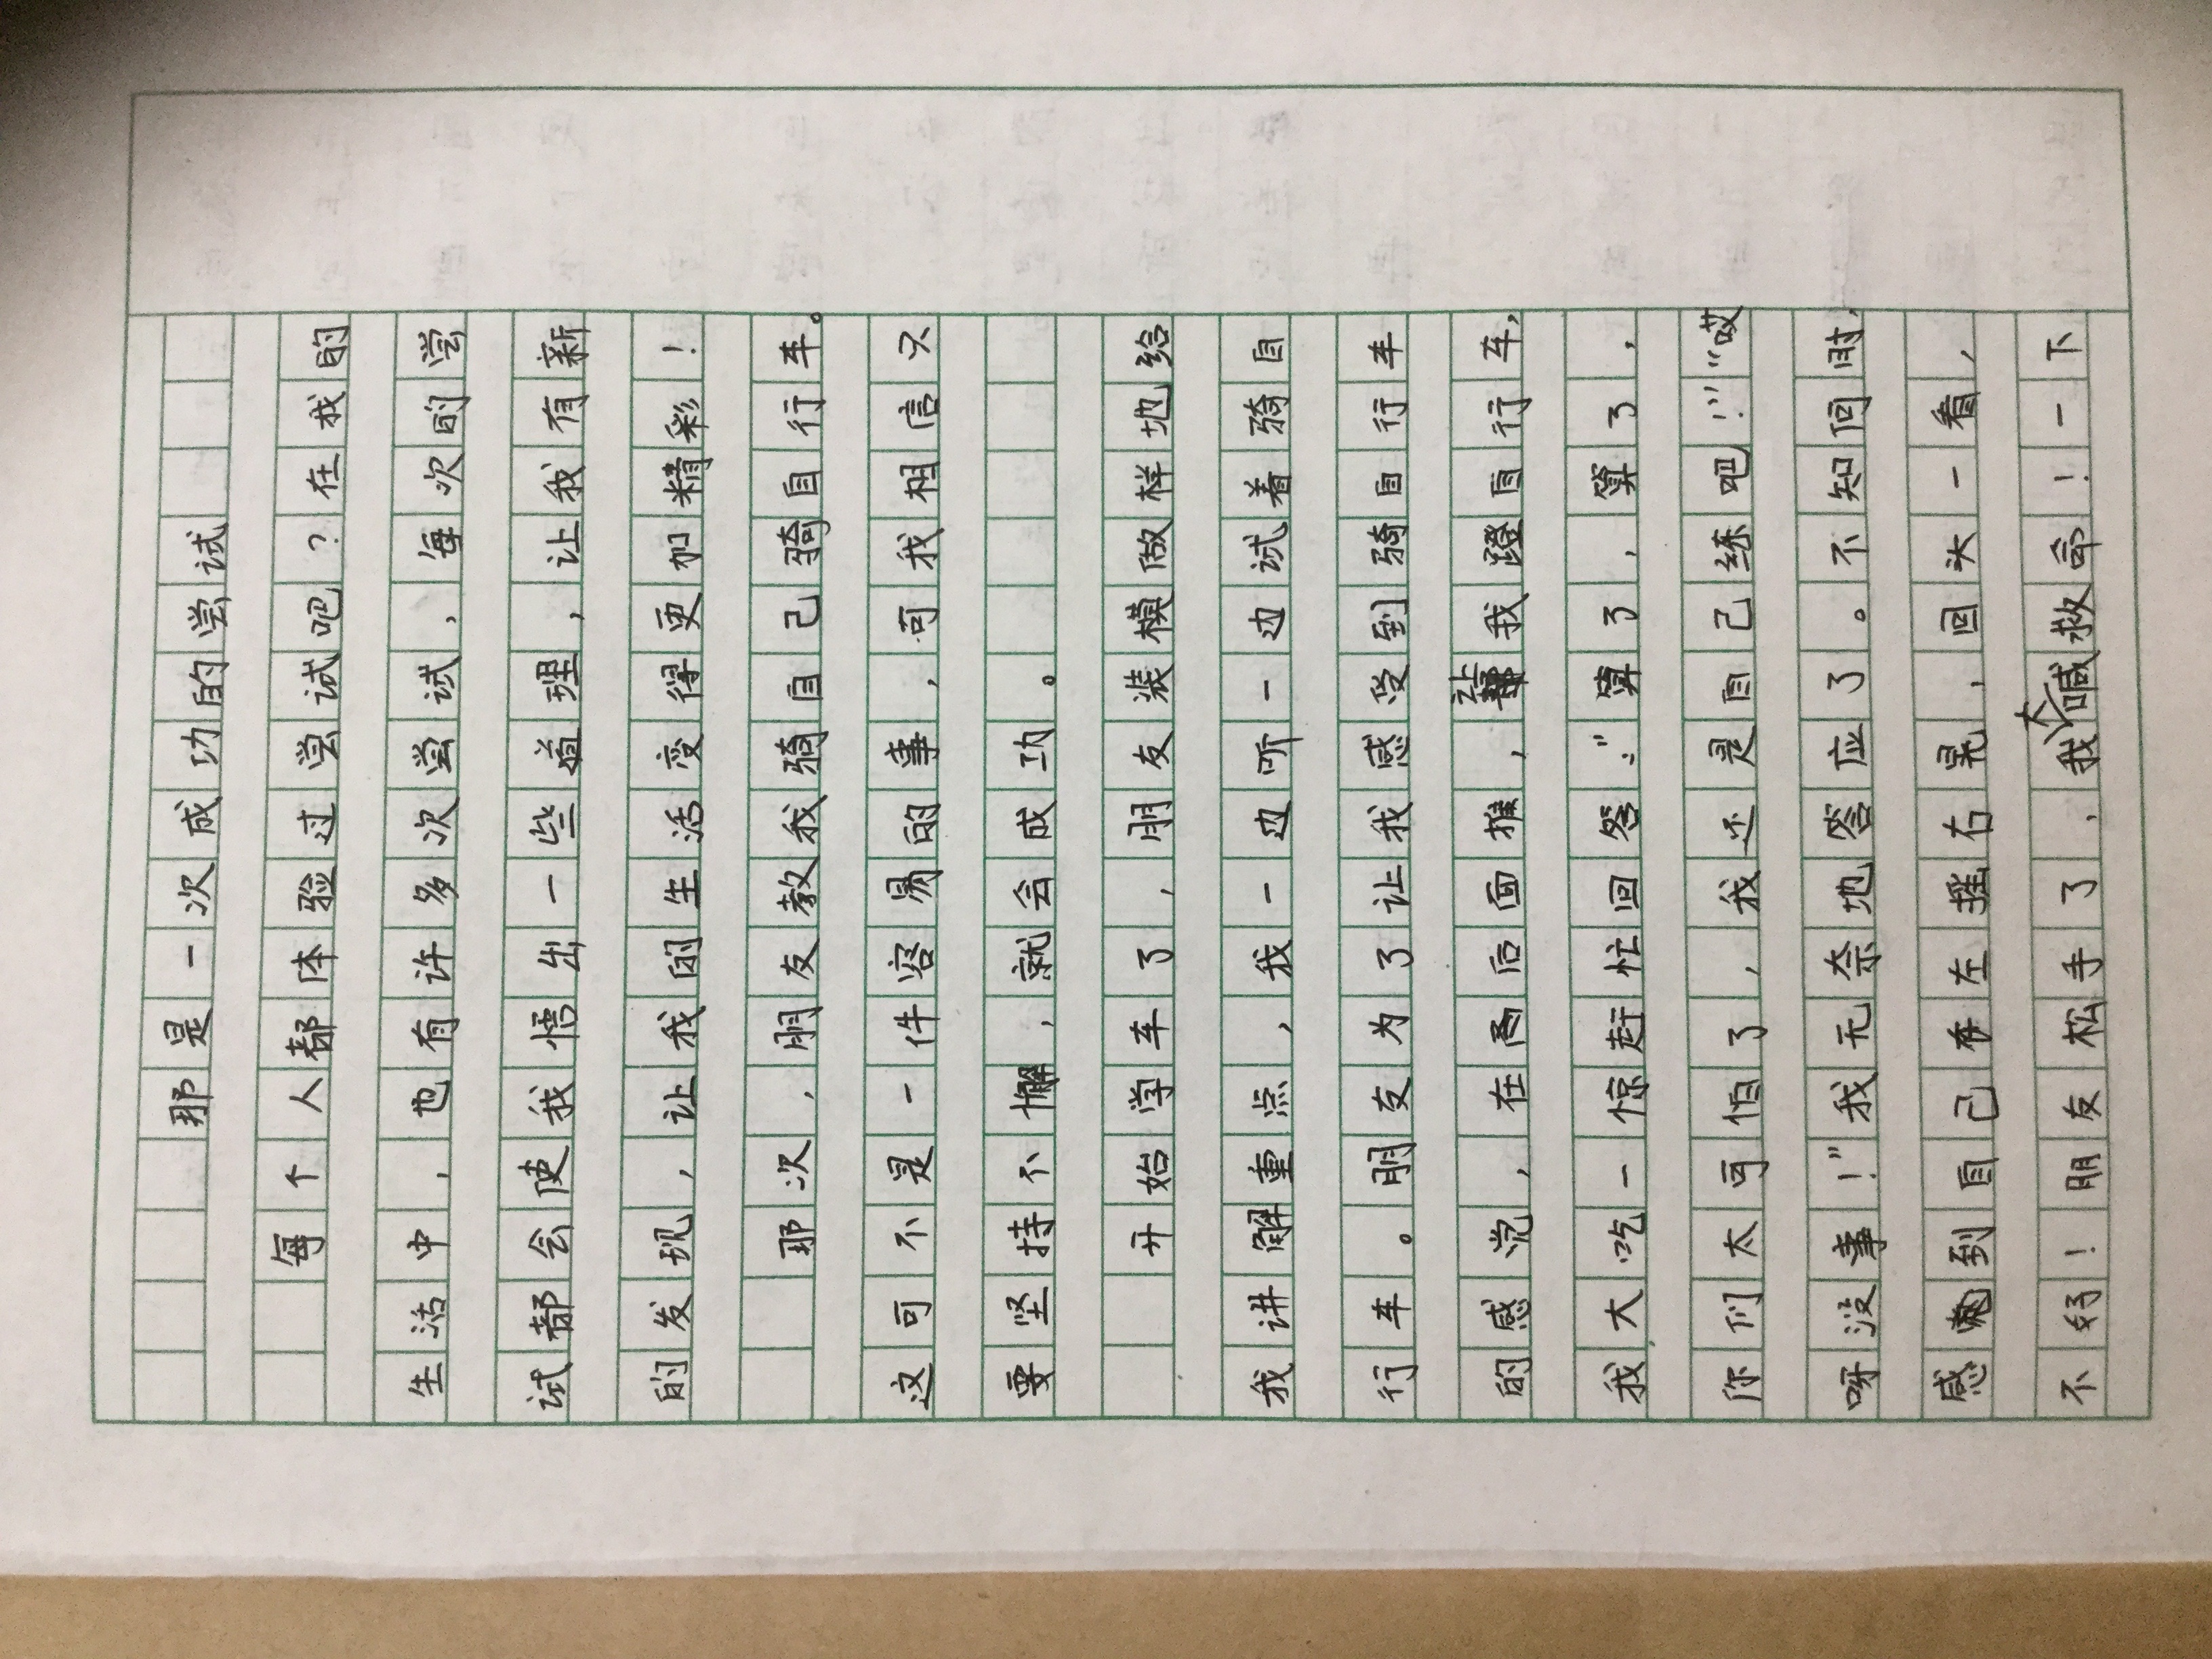 那是一次成功的尝试
每个人都体验过尝试吧？在我的
生活中，也有许多次尝试，每次的尝
试都会使我悟出一些道理，让我有新
的发现，让我的生活变得更加精彩！
那次，朋友教我骑自己骑自行车。
这可不是一件容易的事，可我相信只
要坚持不懈，就会成功。
开始学车了，朋友装模做样地给
我讲解重点，我一边听一边试着骑自
行车。朋友为了让我感受到骑自行车
的感觉，在后面推，让我蹬自行车，
我大吃一惊赶忙回答：“算了，算了，
你们太可怕了，我还是自己练吧！”“哎
呀没事！”我无奈地答应了。不知何时，
感到自己在左摇右晃，回头一看，
不好！朋友松手了，我大喊救命！一下